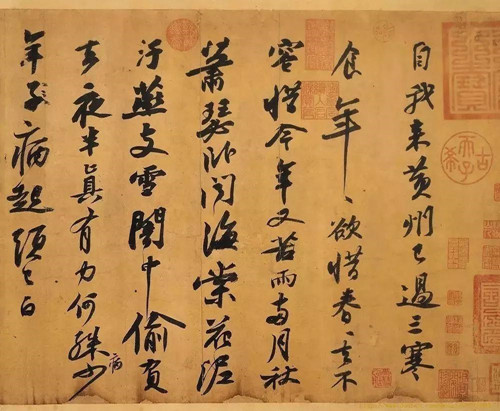 自我來黄州已過三寒
食年〻欲惜春〻去不
容惜今年又苦雨兩月秋
蕭瑟卧聞海棠花泥
汙燕支雪闇中偷負
去夜半真有力何殊少
病
年子病起頭已白
古希天子